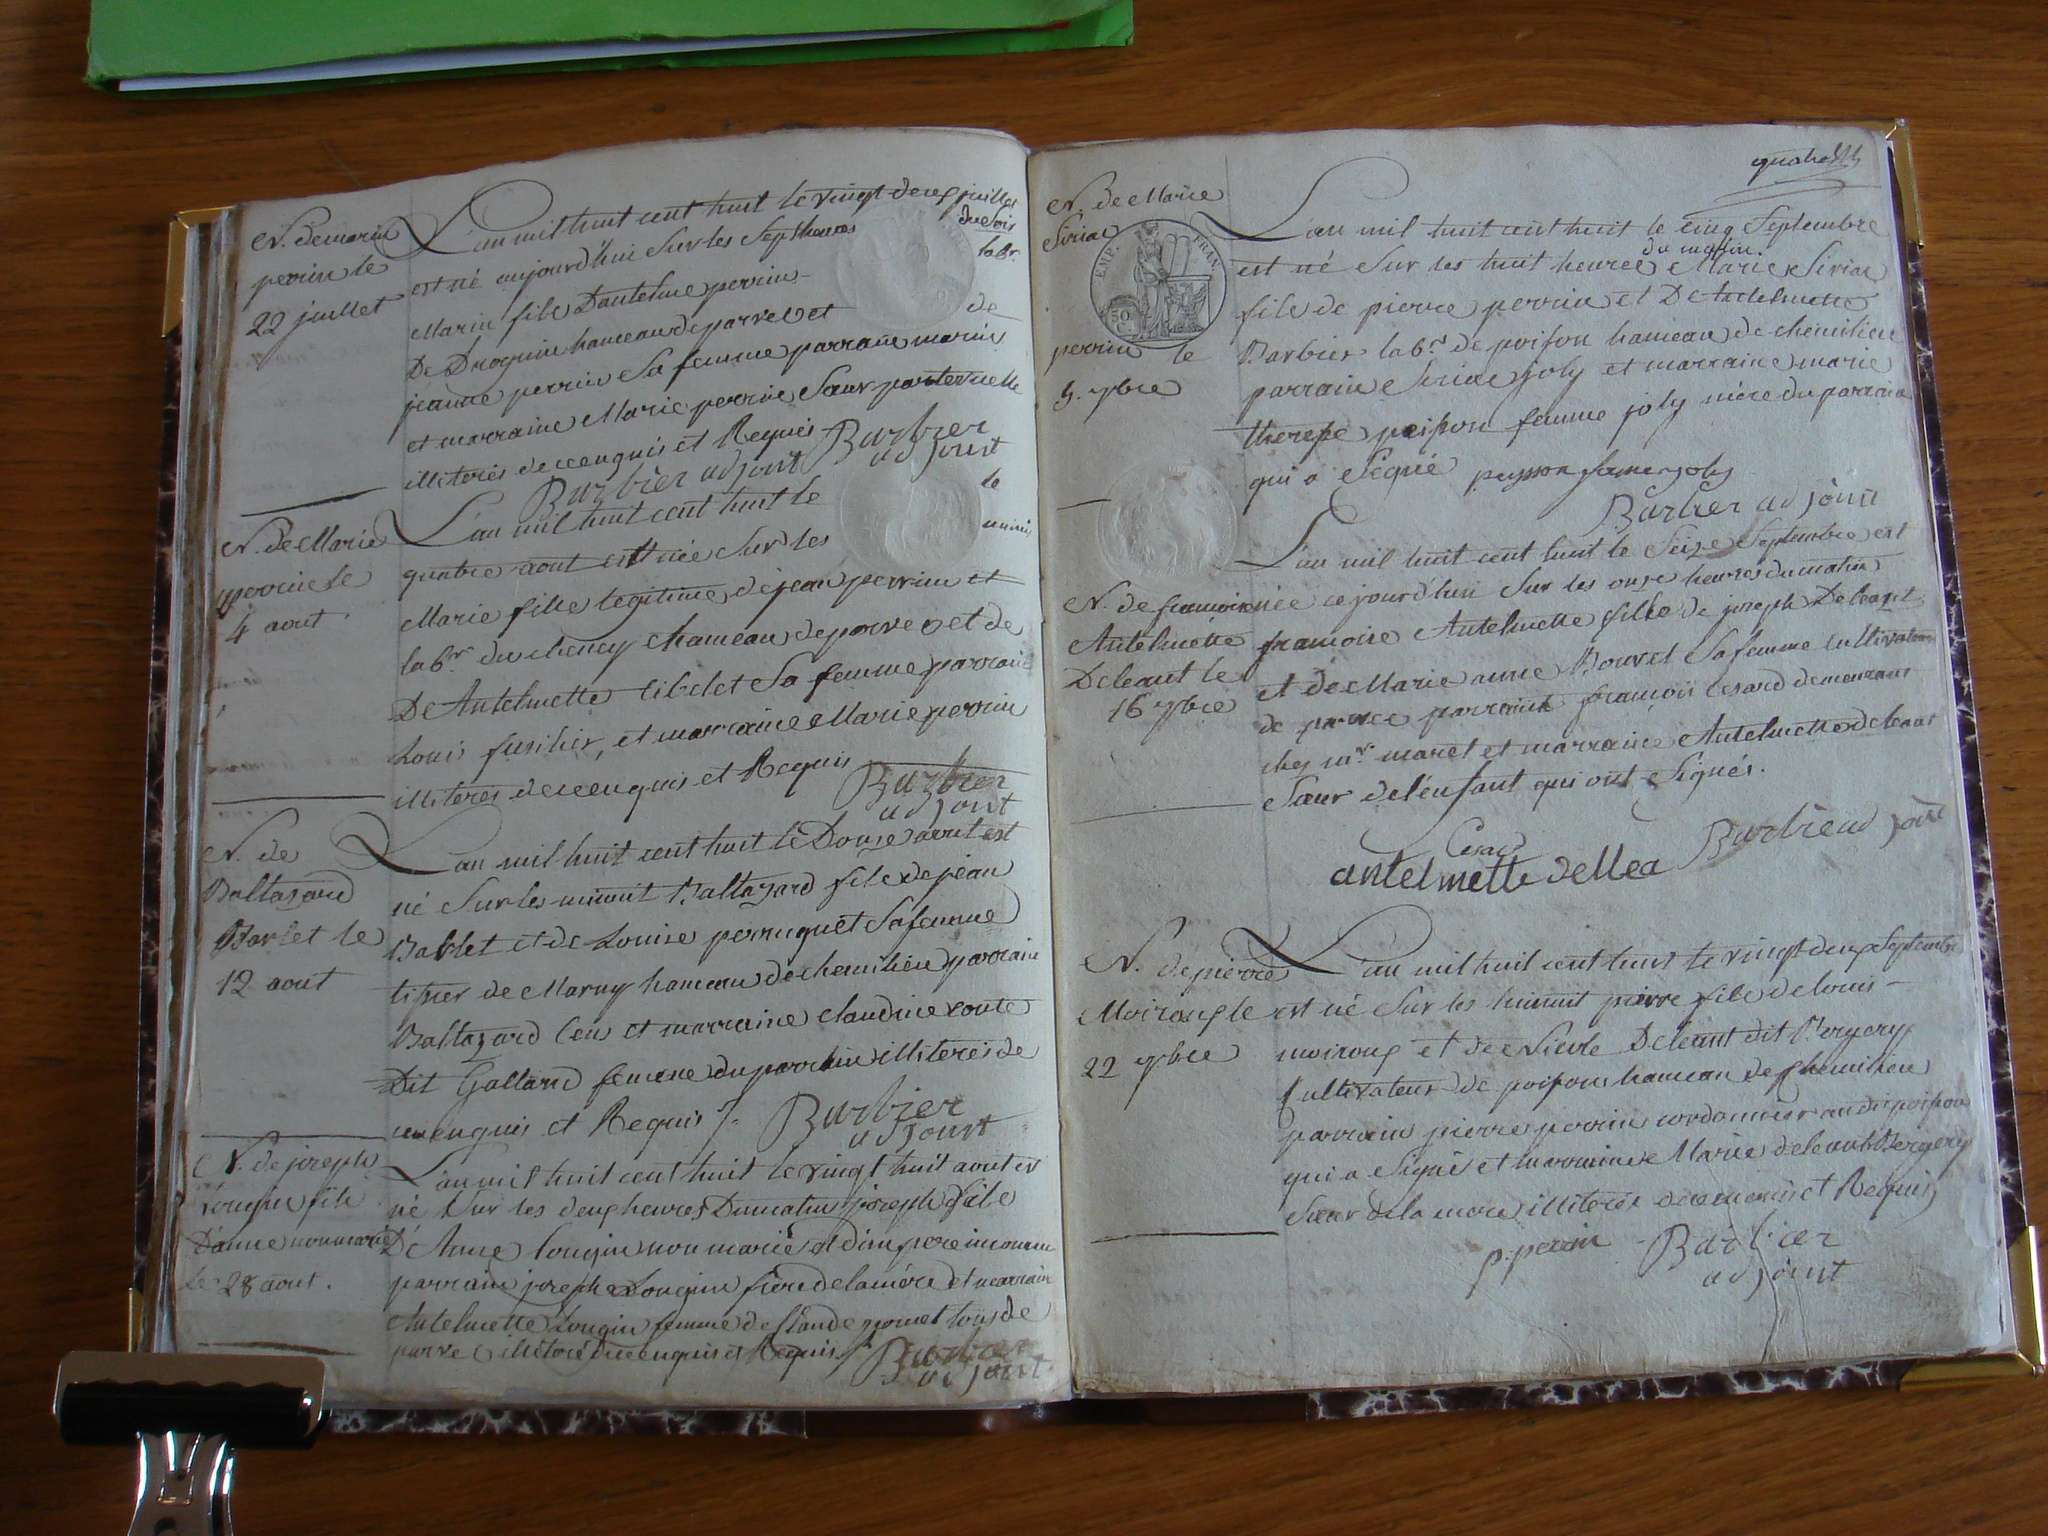 N. de marin
perrin le
22 juillet
L'an mil huit cent huit le vingt deux juillet
est né aujourd'hui sur les sept heures du soir
Marin fils D'antelme perrin lab.r
De Droguin hameau de parves et de
jeanne perrin sa femme parrain marin
et marraine Marie perrin sœur paternelle
illiterés de ce enquis et Requis
Barbier adjoint
Barbier adjoint
N. de Marie
perrin le
4 aout
L'an mil huit cent huit le
quatre aout est née sur les
Marie fille legitime de jean perrin et
lab.r du cheney hameau de parves et de
De Antelmette sa femme parrain
Louis fusilier, et marraine Marie perrin
illiterés de ce enquis et Requis
Barbier
adjoint
N. de
Baltazard
Barlet le
12 aout
L'an mil huit cent huit le Douze aout est
né sur les minuit Baltazard fils de jean
Barlet et de Louise perruquet sa femme
tissier de Marny hameau de chemilieu parrain
Baltazard et marraine claudine
Dit Galland femme du parrain illiterés de
ce enquis et Requis
Barbier
adjoint
N. de joseph
Longin fils
D'anne non mariée
le 28 aout.
L'an mil huit cent huit le vingt huit aout est
né sur les deux heures Du matin joseph fils
D'Anne Longin non mariée et d'un pere inconnu
parrain joseph Longin frère de la mère et marraine
Antelmette Longin femme de Claude tous de
parve illiterés de ce enquis et Requis
Barbier
adjoint
N. de Marie
Siriac
perrin le
5. 7bre
EMP. FRAN.
50 C.
L'an mil huit cent huit le cinq Septembre
est né sur les huit heures du matin Marie Siriac
fils de pierre perrin et De Antelmette
Barbier lab.r de poison hameau de chemilieu
parrain Siriac joly et marraine marie
therese peisson femme joly mère du parrain
qui a signé peysson femme joly
Barbier adjoint
N. de francoise
Antelmette
Deleant le
16 7bre
L'an mil huit cent huit le Seize Septembre est
née ce jourd'hui sur les onze heures du matin
francoise Antelmette fille de joseph Deleant
et de Marie anne Bouvet sa femme cultivateur
de parve parrain françois Cesard demeurant
chez m.r maret et marraine Antelmette deleant
sœur de l'enfant qui ont signés.
Cesard
antelmette dellea Barbier adjoint
N. de pierre
Moiroux le
22 7bre
L'an mil huit cent huit le vingt deux Septembre
est né sur les minuit pierre fils de louis
moiroux et de Nicole Deleant dit Bergery
Cultivateur de poison hameau de Chemilieu
parrain pierre perrin cordonnier au dit poison
qui a signé et marraine Marie deleant Bergery
sœur de la mere illiterée de ce enquis et Requis
p. perrin Barbier
adjoint